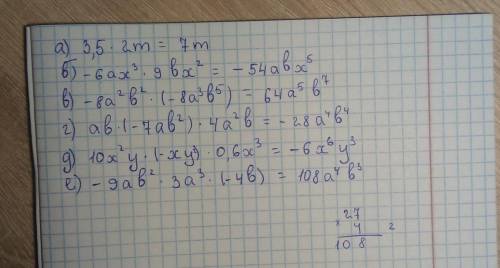 а) 3,5 · 2m = 7m
б) -6ax³ · 9bx² = -54abx⁵
в) -8a²b² · (-8a³b⁵) = 64a⁵b⁷
г) ab · (-7ab²) · 4a²b = -28a⁴b⁴
д) 10x²y · (-xy²) · 0,6x³ = -6x⁶y³
е) -9ab² · 3a³ · (-4b) = 108a⁴b³
27
× 4
108 2